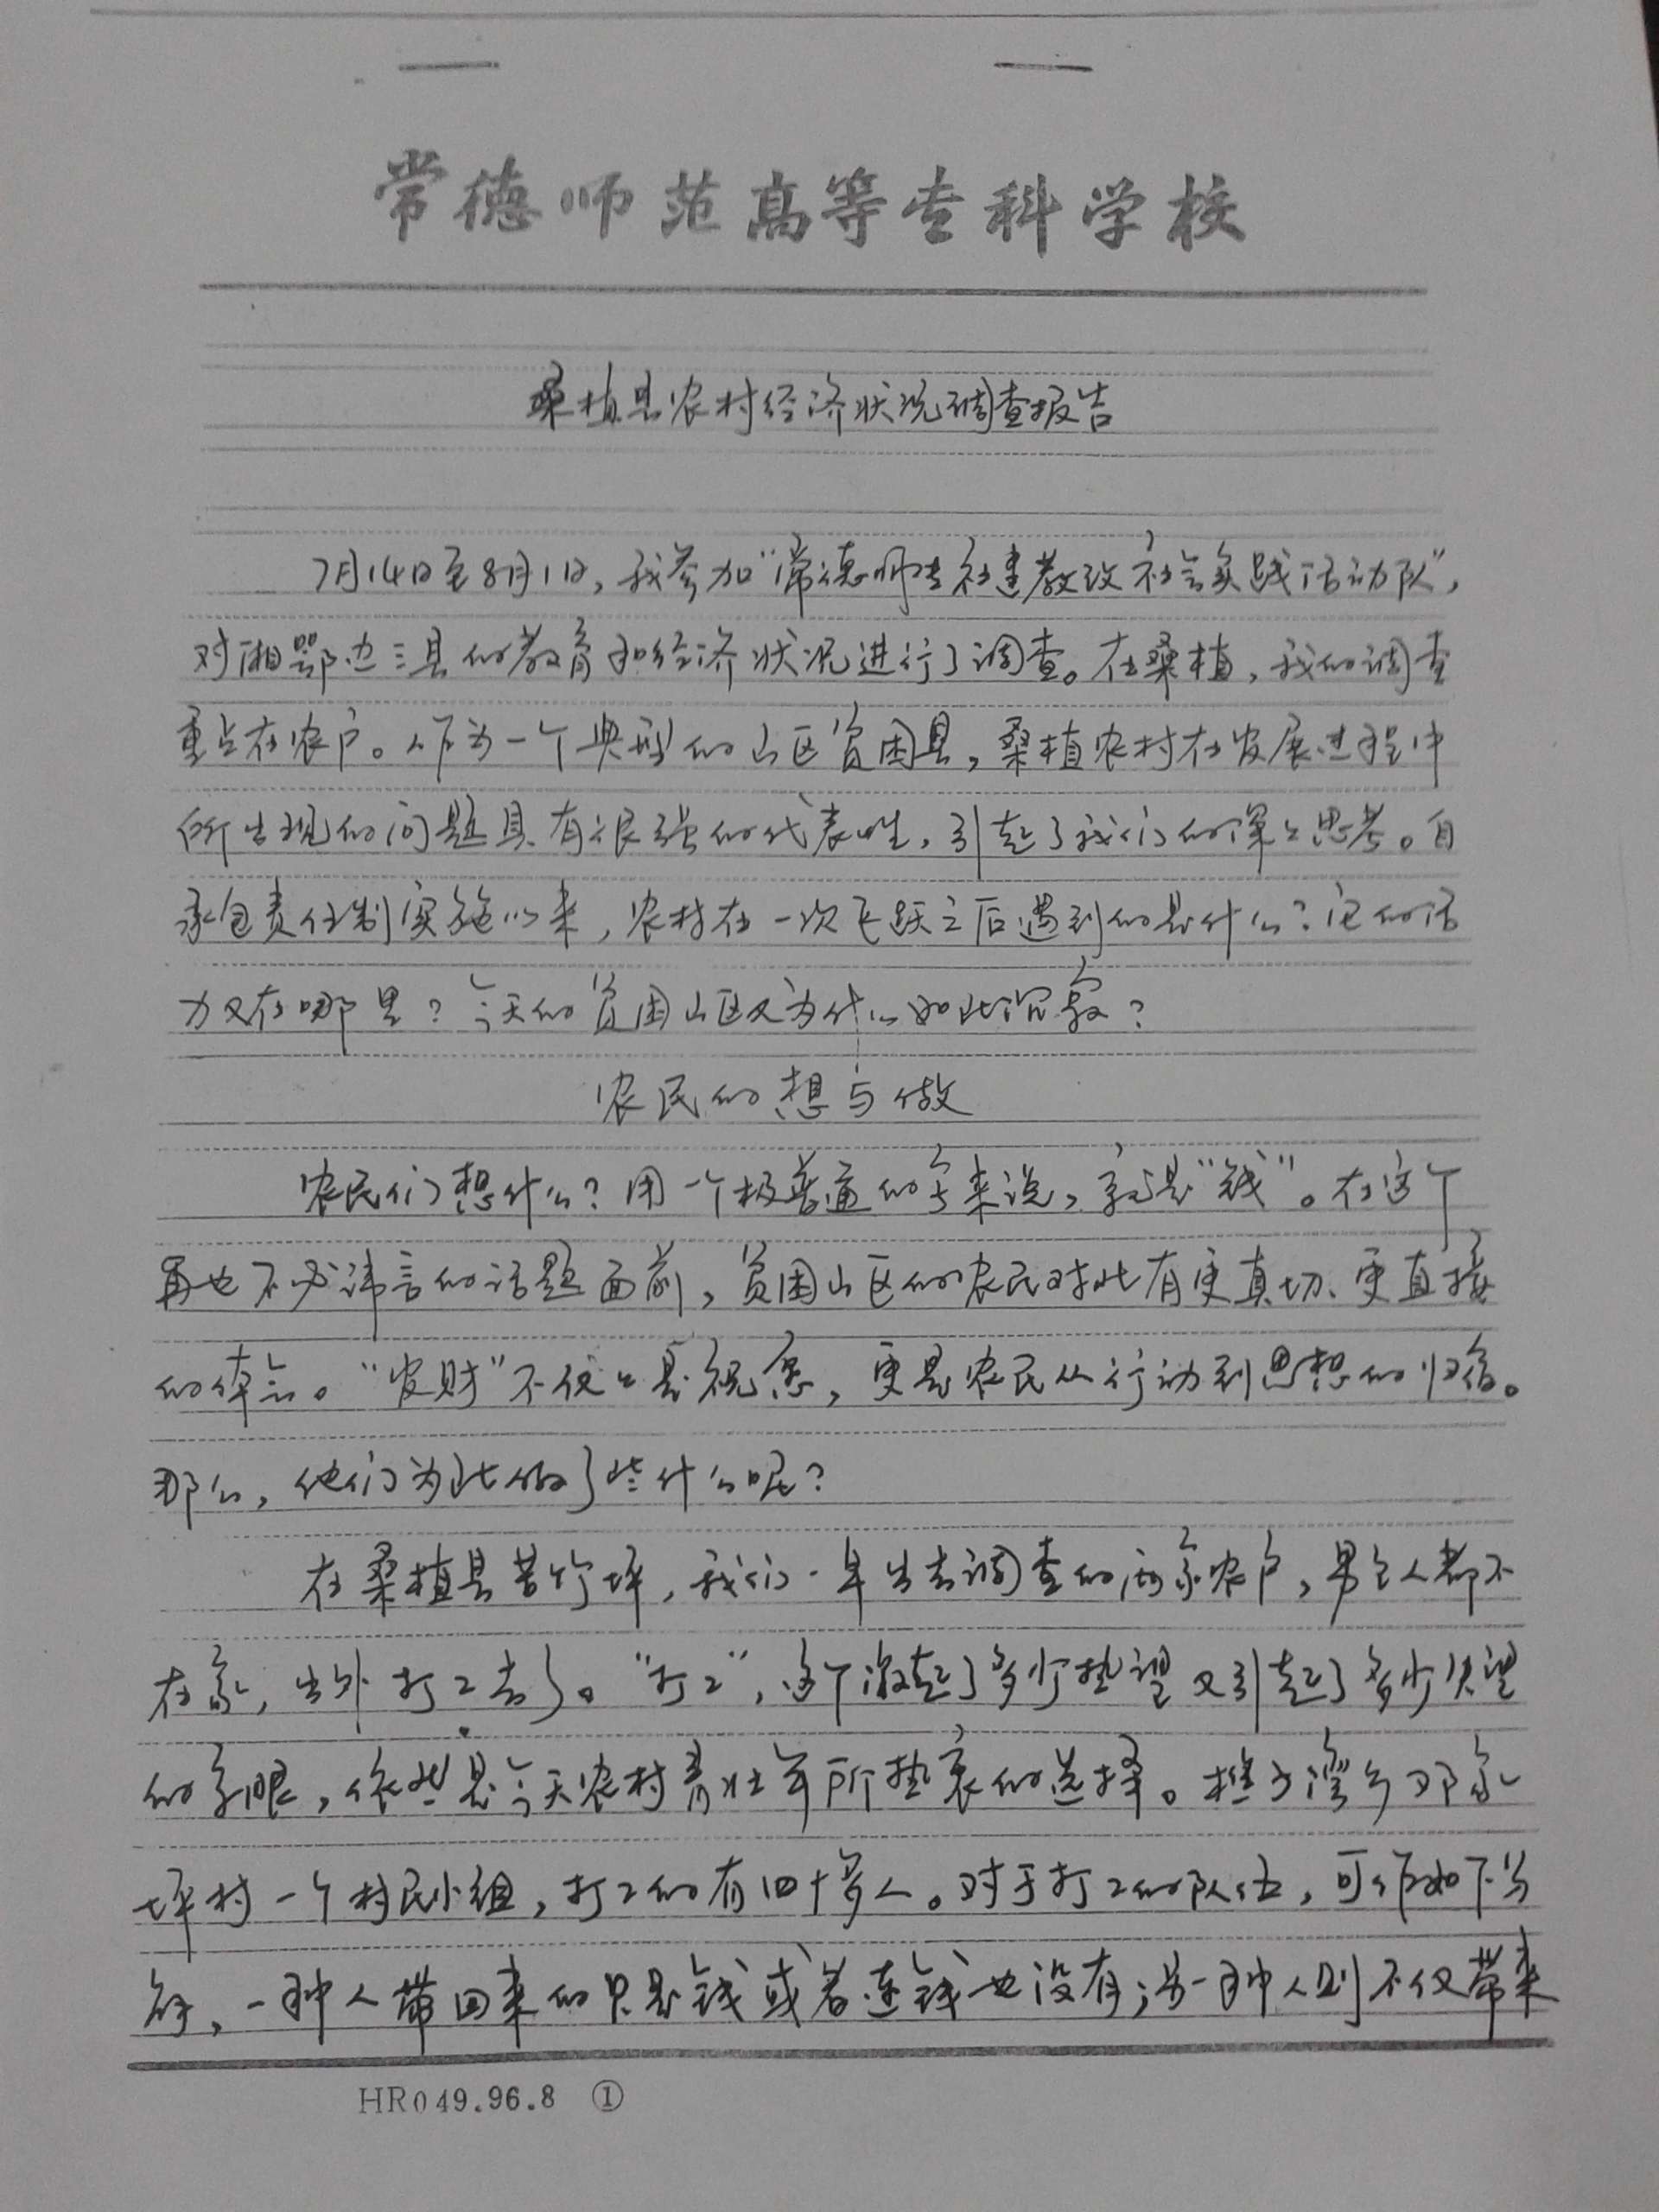 常德师范高等专科学校
桑植县农村经济状况调查报告
7月14日至8月1日,我参加“常德师专社建教改社会实践活动队”,
对湘鄂边三县的教育和经济状况进行了调查。在桑植,我的调查
重点在农户。作为一个典型的山区贫困县,桑植农村在发展进程中
所出现的问题具有很强的代表性,引起了我们的深深思考。自
承包责任制实施以来,农村在一次飞跃之后遇到的是什么?它的活
力又在哪里?今天的贫困山区又为什么如此沉寂?
农民的想与做
农民们想什么?用一个极普通的字来说,就是“钱”。在这个
再也不必讳言的话题面前,贫困山区的农民对此有更真切、更直接
的体会。“发财”不仅仅是祝愿,更是农民从行动到思想的归宿。
那么,他们为此做了些什么呢?
在桑植县苦竹坪,我们一早出去调查的两家农户,男主人都不
在家,出外打工去了。“打工”,这个激起了多少热望又引起了多少失望
的字眼,依然是今天农村青壮年所热衷的选择。樵子湾乡邓家
坪村一个村民小组,打工的有四十多人。对于打工的队伍,可作如下分
解,一种人带回来的只是钱或者连钱也没有;另一种人则不仅带来
HR049.96.8 ①